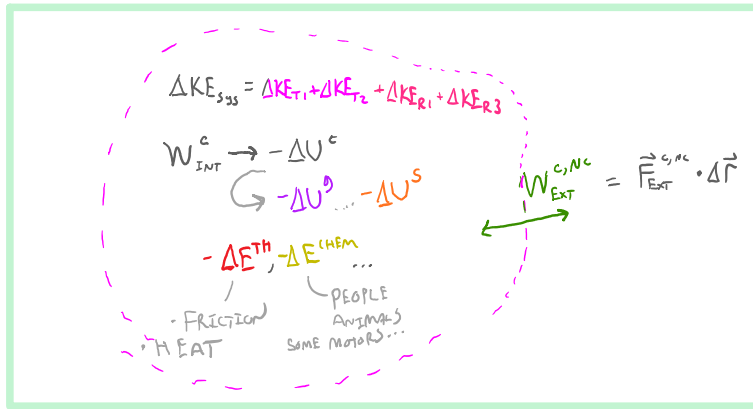 ΔKE_sys = ΔKE_T1 + ΔKE_T2 + ΔKE_R1 + ΔKE_R3
W^C_INT → -ΔU^C
-ΔU^g ... -ΔU^S
-ΔE^TH, -ΔE^CHEM ...
· FRICTION
· HEAT
PEOPLE
ANIMALS
SOME MOTORS...
W^C,NC_EXT = F⃗^C,NC_EXT · Δr⃗